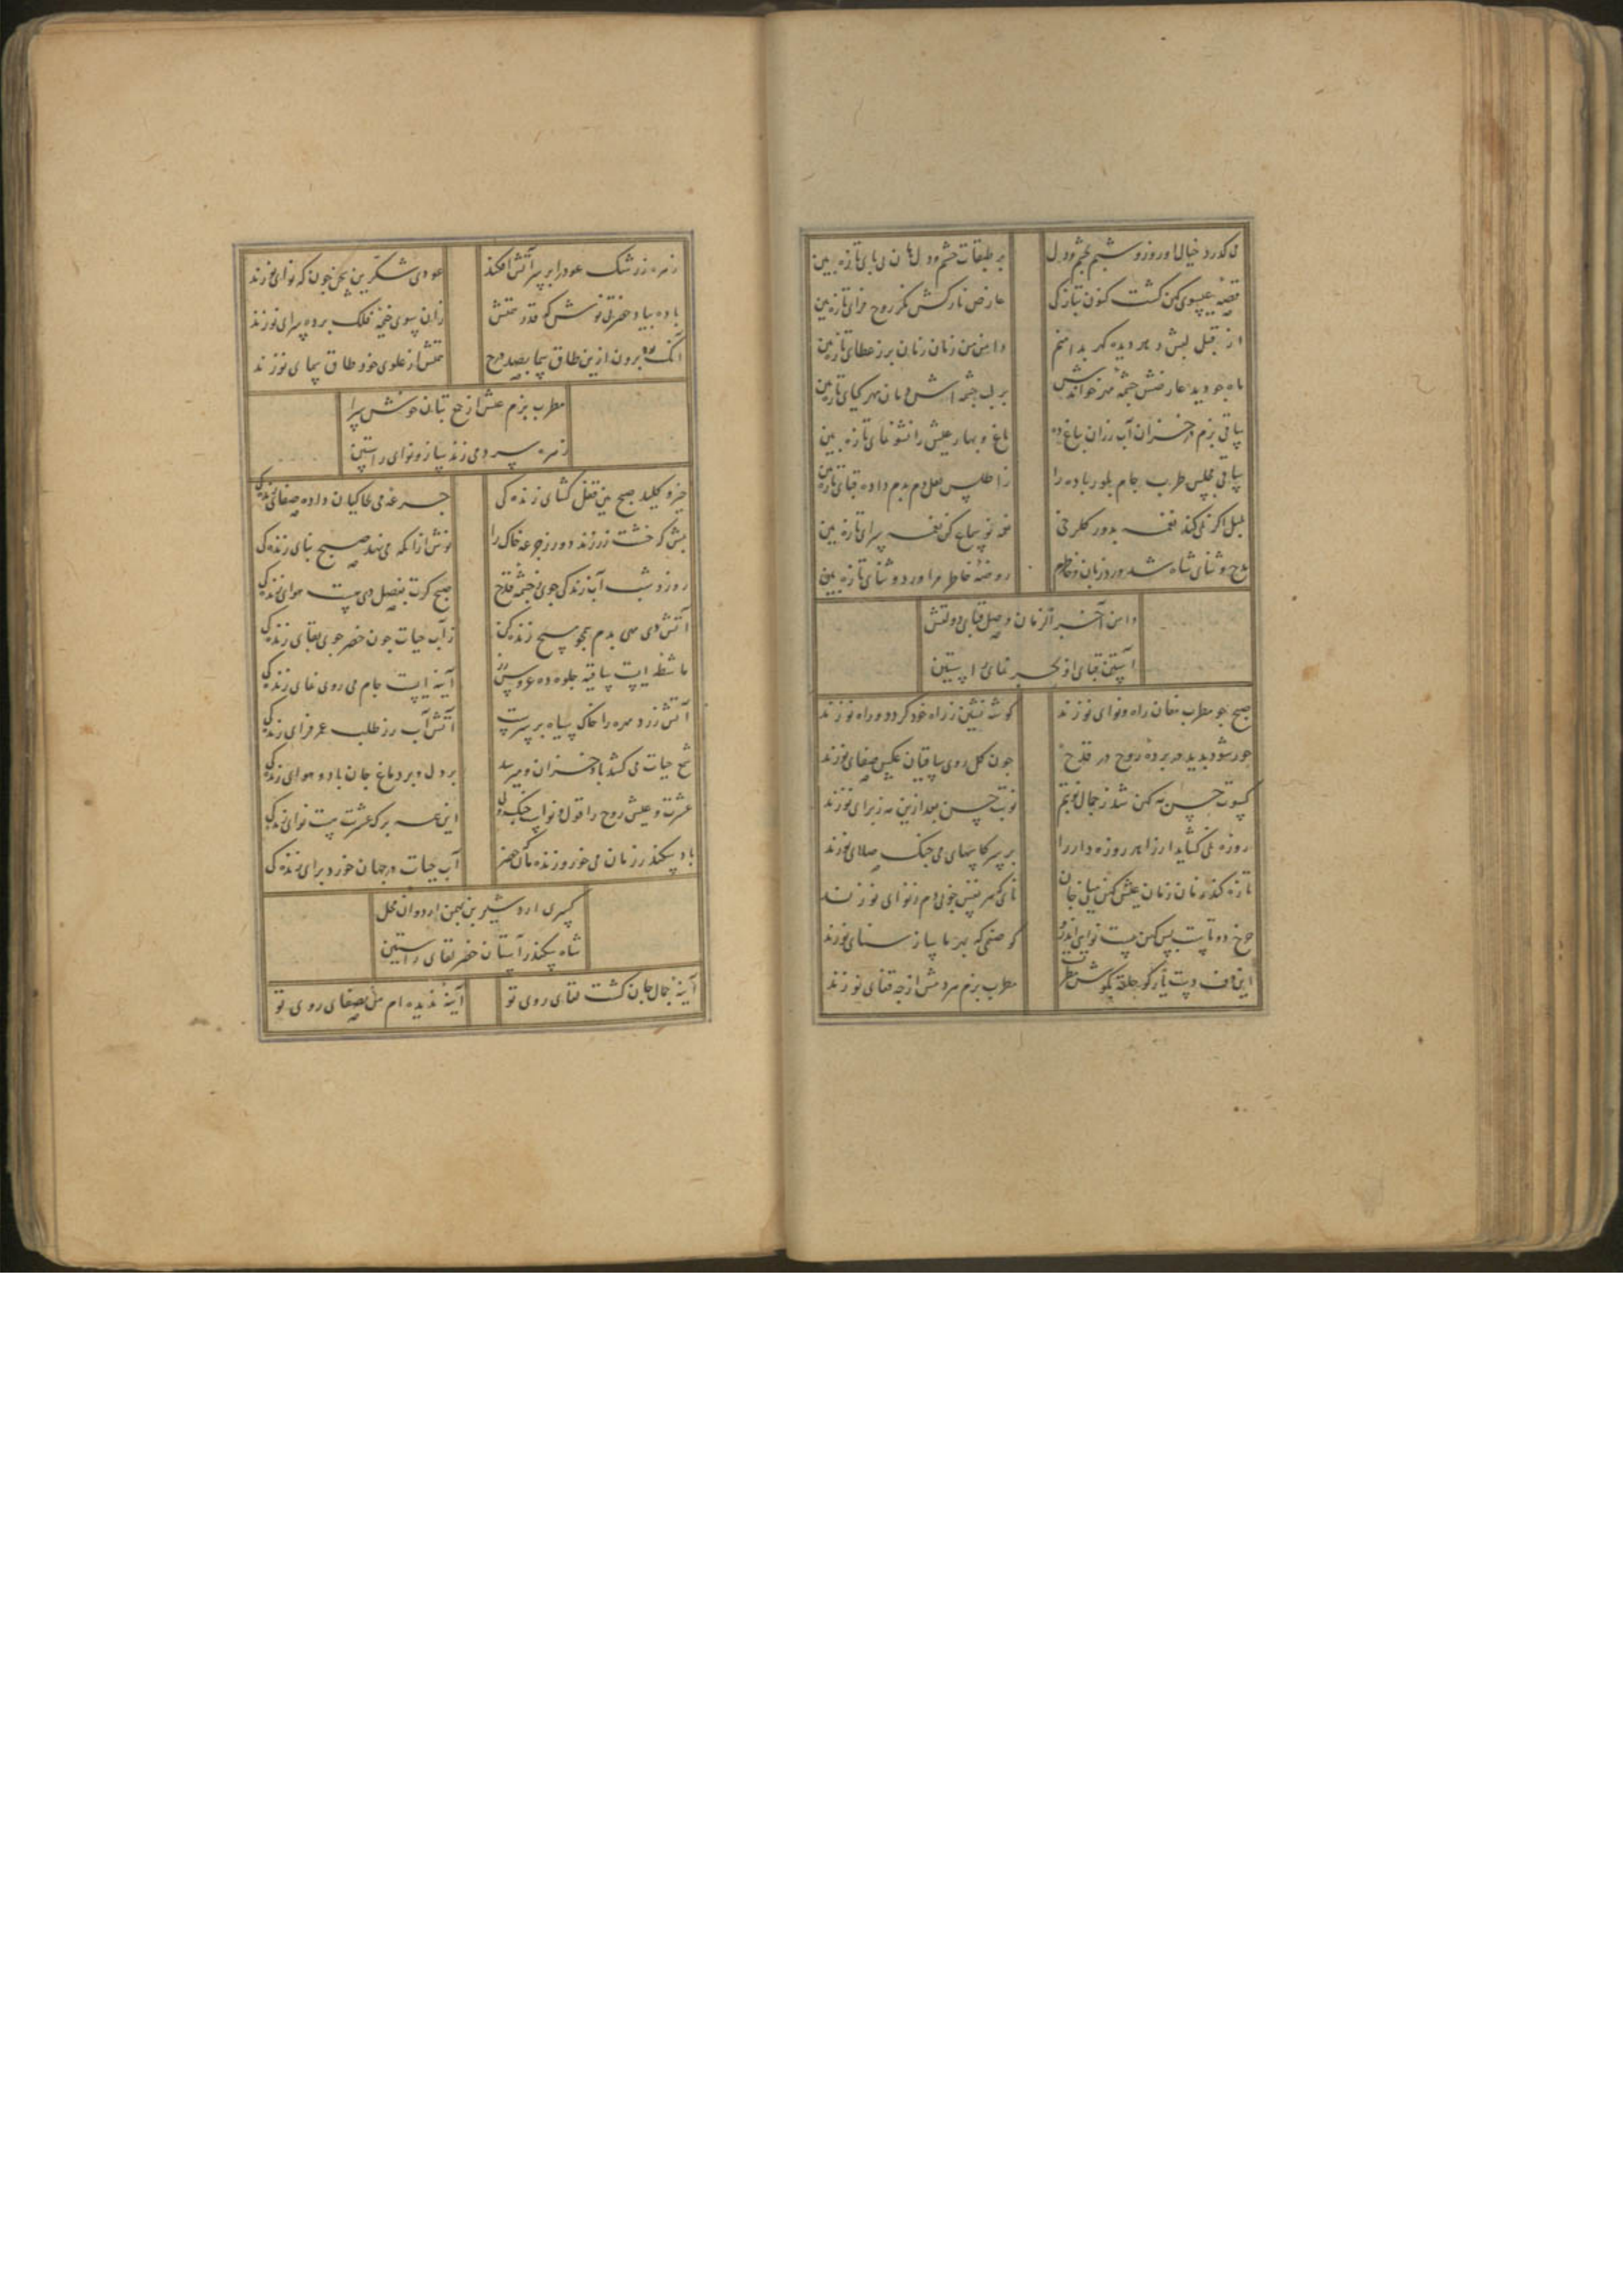 می کذرد خیال او روز و شبم بچشم و دل بر طبقات چشم و دل بین
قصه عیسوی کهن کشت کنون بتازکی عارض نازکش نکر روح فزای تازه بین
از قبل لبش دیده کهر بدامنم دامن من زمان زمان پر ز عطای تازه بین
ماه چو دید عارضش چشمه مهر خواندش بر لب چشمه اش دمان مهر کیای تازه بین
ساقی بزم در خزان آب رزان بباغ ده باغ و بهار عیش را نشو نمای تازه بین
ساقی مجلس طرب جام بلور باده را ز اطلس لعل دم بدم داده قبای تازه بین
بلبل اکر نمی کند نغمه بدور کلرخی نغمه نو سماع کن نغمه سرای تازه بین
مدح و ثنای شاه شد ورد زبان و خاطرم روضه خاطر مرا ورد و ثنای تازه بین
دامن آخر الزمان وصل قبای دولتش
آستین قبای او بحر نمای راستین
صبح چو مطرب مغان راه و نوای نو زند کوشه نشین ز راه خود کردد و راه نو زند
چون شود بدید در برده روح در قدح چون کل روی ساقیان عکس صفای نو زند
کسوت حسن مه کهن شد ز جمال نوبتم نوبت حسن بعد ازین مه ز برای نو زند
روزه نمی کشاید ار زاهد روزه دار را بر سر کاسهای می چنک صلای نو زند
تازه کند زمان زمان عیش کهن میان جان نای کهر نفس چو دم ز نوای نو زند
چرخ دوتاست بس کهن نیست نوایی اندرو کو صنمی که بهر ما ساز ستای نو زند
این دف کو حلقه بکوش مطرب بزم هر دمش از چه قفای نو زند
زهره ز رشک عود را بر سر آتش افکند عودی شکرین سخن چون که نوای نو زند
باده بیاد حضرتی نوش که قدر همتش زان سوی خیمه فلک برده سرای نو زند
آنک برون ازین طاق سما بصد درج همتش از علوی خود طاق سمای نو زند
مطرب بزم عشرتش از رخ بتان خوش سرا
زهره سرد می زند ساز و نوای راستین
خیز و کلید صبح بین قفل کشای زنده کی جرعه می بخاکیان داده صفای زنده کی
بیش که خشت زر زند دور ز جرعه خاک را نوش ازانکه می نهد صبح بنای زنده کی
روز و شب آب زندکی جوی ز چشمه قدح صبح کرت بفصل دی هست هوای زنده کی
آتش دی همی بدم همچو مسیح زنده کن ز آب حیات چون خضر جوی بقای زنده کی
ماشطه ایست ساقیه جلوه ده عروس آینه ایست جام می روی نمای زنده کی
آتش زرد مهره را خاک سیاه بر سرست آتش آب رز طلب عمر فزای زنده کی
شح حیات می کشد باد خزان و میرسد بر دل و بر دماغ جان باد و هوای زنده کی
عشرت و عیش روح را قول و نواست چنک و نی این همه برک عشرتست نوای زنده کی
باد سکندر زمان می خور و زنده مان خضر آب حیات در جهان خورد برای زنده کی
کسری اردشیر بن بهمن اردوان محل
شاه سکندر آستان خضر بقای راستین
آینه جمال جان کشت لقای روی تو آینه ندیده ام بصفای روی تو